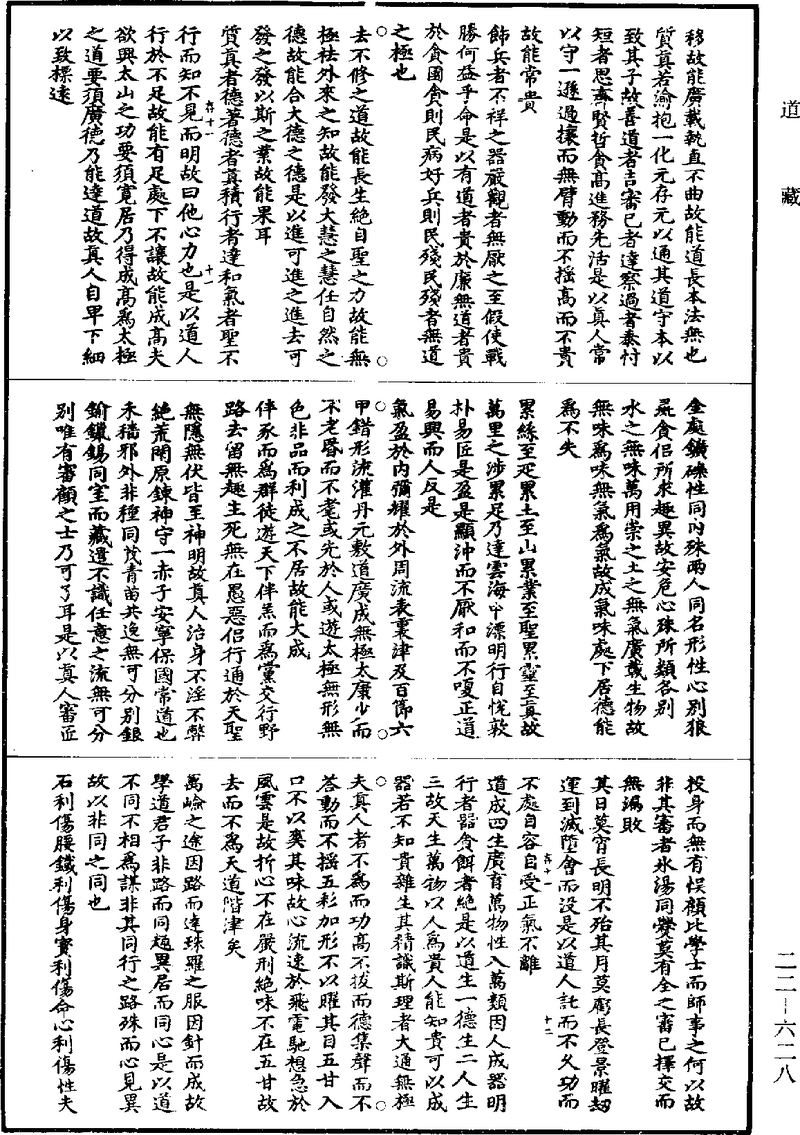 道藏
移故能廣載執直不曲故能道長本法無也
質真若渝抱一化元存元以通其道守本以
致其子故善道者吉審己者達察過者泰忖
短者思齊賢哲食高進務先活是以真人常
以守一遜過攘而無臂動而不搖高而不貴
故能常貴
飾兵者不祥之器嚴觀者無厭之至假使戰
勝何益乎命是以有道者貴於廉無道者貴
於貪國貪則民病好兵則民殘民殘者無道
之極也
去不修之道故能長生絕自聖之力故能無
極袪外來之知故能發大慧之慧任自然之
德故能合大德之德是以進可進之進去可
發之發以斯之業故能果耳
質真者德著德者真積行者達和氣者聖不
行而知不見而明故曰他心力也是以道人
行於不足故能有足處下不讓故能成高夫
欲興太山之功要須寬居乃得成高為太極
之道要須廣德乃能達道故真人自卑下細
以致標遠
金處鑛礫性同內殊兩人同名形性心別狼
羆貪侶所求趣異故安危心殊所類各別
水之無味萬用崇之土之無氣廣載生物故
無味為味無氣為氣故成氣味處下居德能
為不失
累絲至疋累土至山累業至聖累靈至真故
萬里之涉累足乃達雲海漂明行自悅敦
朴易匠是盈是顯沖而不厭和而不嗄正道
易興而人反是
氣盈於內彌耀於外周流表裏津及百節六
甲錯形流灌丹元敷道廣成無極太康少而
不老昏而不耄或光於人或遊太極無形無
色非品而利成之不居故能大成
伴豕而為群徒遊天下伴羔而為黨交行野
路去留無趣生死無在愚惡侶行通於天聖
無隱無伏皆至神明故真人治身不淫不弊
絕荒閑原鍊神守一赤子安寧保國常道也
禾穡邪外非種同茂青苗共逸無可分別銀
鍮鑞錫同室而藏遣不識任意之流無可分
別唯有審顧之士乃可了耳是以真人審匠
投身而無有悞顧比學士而師事之何以故
非其審者氷湯同變莫有全之審已擇交而
無漏敗
其日莫宵長明不殆其月莫虧長登景曜劫
運到滅墮會而沒是以道人託而不久功而
不處自容自受正氣不離
道成四生廣育萬物性入萬類因人成器明
行者器食餌者絕是以道生一德生二人生
三故天生萬物以人為貴人能知貴可以成
器若不知貴雖生其精識斯理者大通無極
夫真人者不為而功高不拔而德集聲而不
荅動而不搖五彩加形不以曜其目五甘入
口不以爽其味故心流速於飛電馳想急於
風雲是故折心不在嚴刑絕味不在五甘故
去而不為天道階津矣
萬崄之途因路而達殊羅之服因針而成故
學道君子非路而同趣異居而同心是以道
不同不相為謀非其同行之路殊而心見異
故以非同之同也
石利傷腰鐵利傷身寶利傷命心利傷性夫
二二—六二八